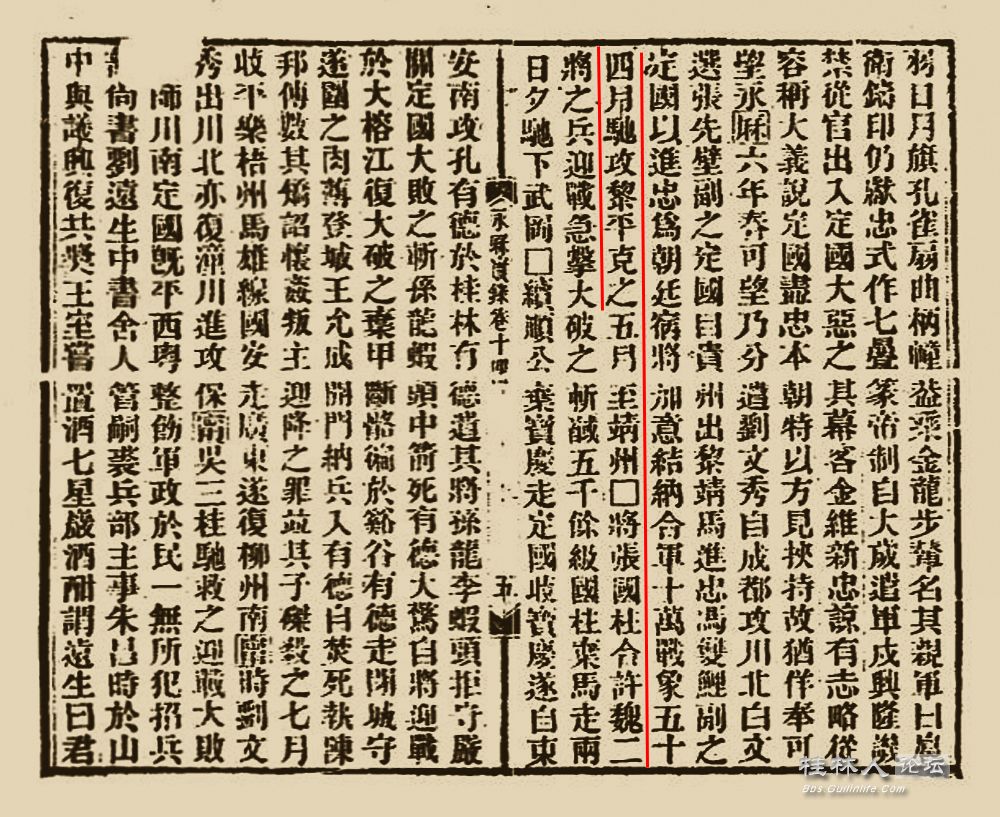 日月旗孔雀扇曲柄幢益乘金龍步輦名其親軍曰扈
衛鑄印仍獻忠式作七疊篆帝制自大咸遣軍戍興隆說
禁從官出入定國大惡之其幕客金維新忠諒有志略從
容稱大義說定國盡忠本朝特以方見挾持故猶佯奉可
望永厤六年春可望乃分遣劉文秀自成都攻川北白文
選張先璧副之定國自貴州出黎靖馬進忠馮雙鯉副之
定國以進忠爲朝廷宿將加意結納合軍十萬戰象五十
四月馳攻黎平克之五月至靖州□將張國柱合許魏二
將之兵迎戰急擊大破之斬馘五千餘級國柱棄馬走兩
日夕馳下武岡□續順公棄寶慶走定國收寶慶遂自東
永厤實錄卷十四
五
安南攻孔有德於桂林有德遣其將孫龍李蝦頭拒守嚴
關定國大敗之斬孫龍蝦頭中箭死有德大驚自將迎戰
於大榕江復大破之棄甲斷骼徧於谿谷有德走閉城守
遂圍之肉薄登城王允成開門納兵入有德自焚死執陳
邦傅數其矯詔懷姦叛主迎降之罪並其子傑殺之七月
收平樂梧州馬雄線國安走廣東遂復柳州南寧時劉文
秀出川北亦復潼川進攻保寧吳三桂馳救之迎戰大敗
師川南定國旣平西粵整飭軍政於民一無所犯招兵
尚書劉遠生中書舍人管嗣裘兵部主事朱昌時於山
中與議興復共奬王室嘗置酒七星巖酒酣謂遠生曰君
桂林人论坛
Bbs.Guilinlife.Com